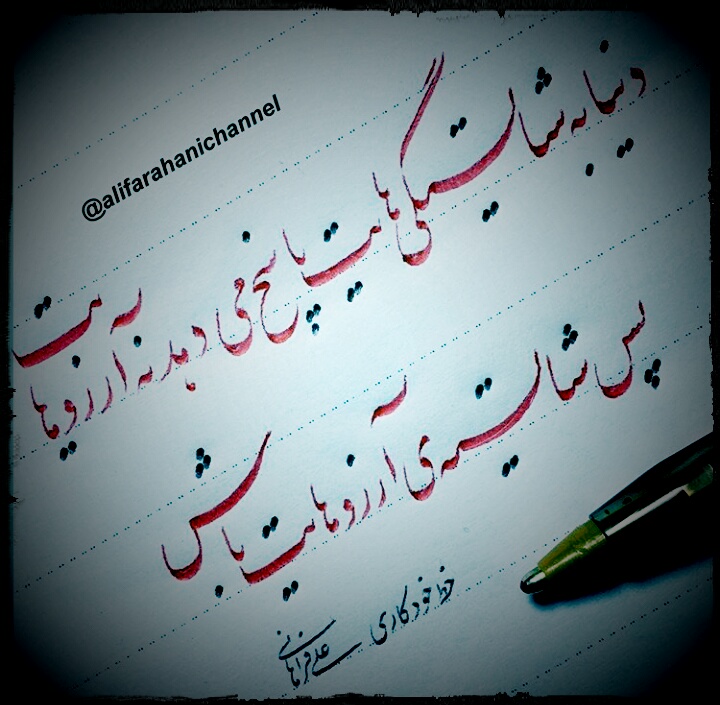 @alifarahanichannel
دنیا به شایستگی هایت پاسخ می دهد نه آرزوهایت
پس شایسته ی آرزوهایت باش
خط خودکاری
علی فراهانی